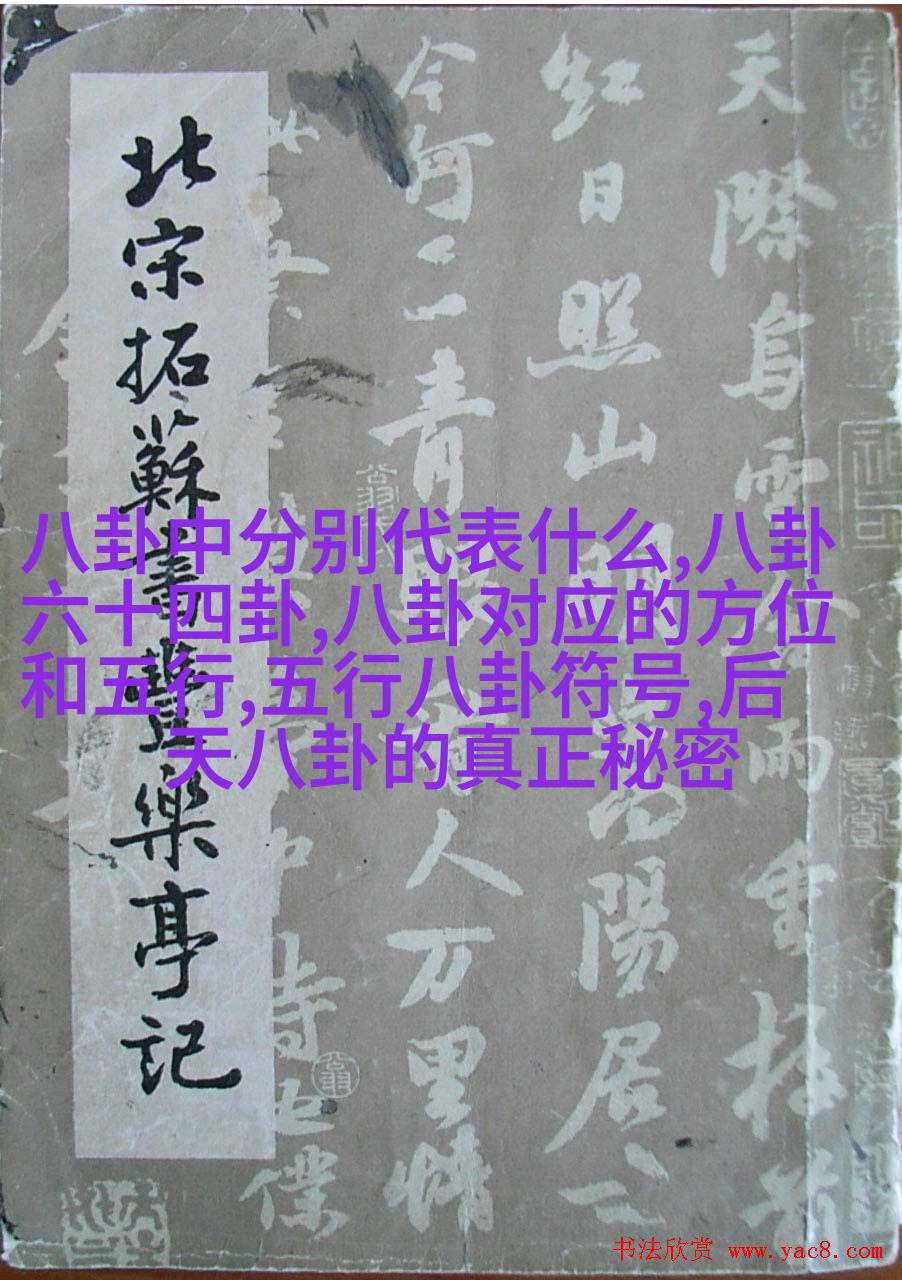 北宋拓蘇書豐樂亭記
天際烏雲含雨重樓前
紅日照山明嵩陽居士
今何在青眼看人万里情
此蔡君謨夢中詩也僕
八卦中分别代表什么,八卦
六十四卦,八卦对应的方位
和五行,五行八卦符号,后
天八卦的真正秘密
书法欣赏 www.yac8.com